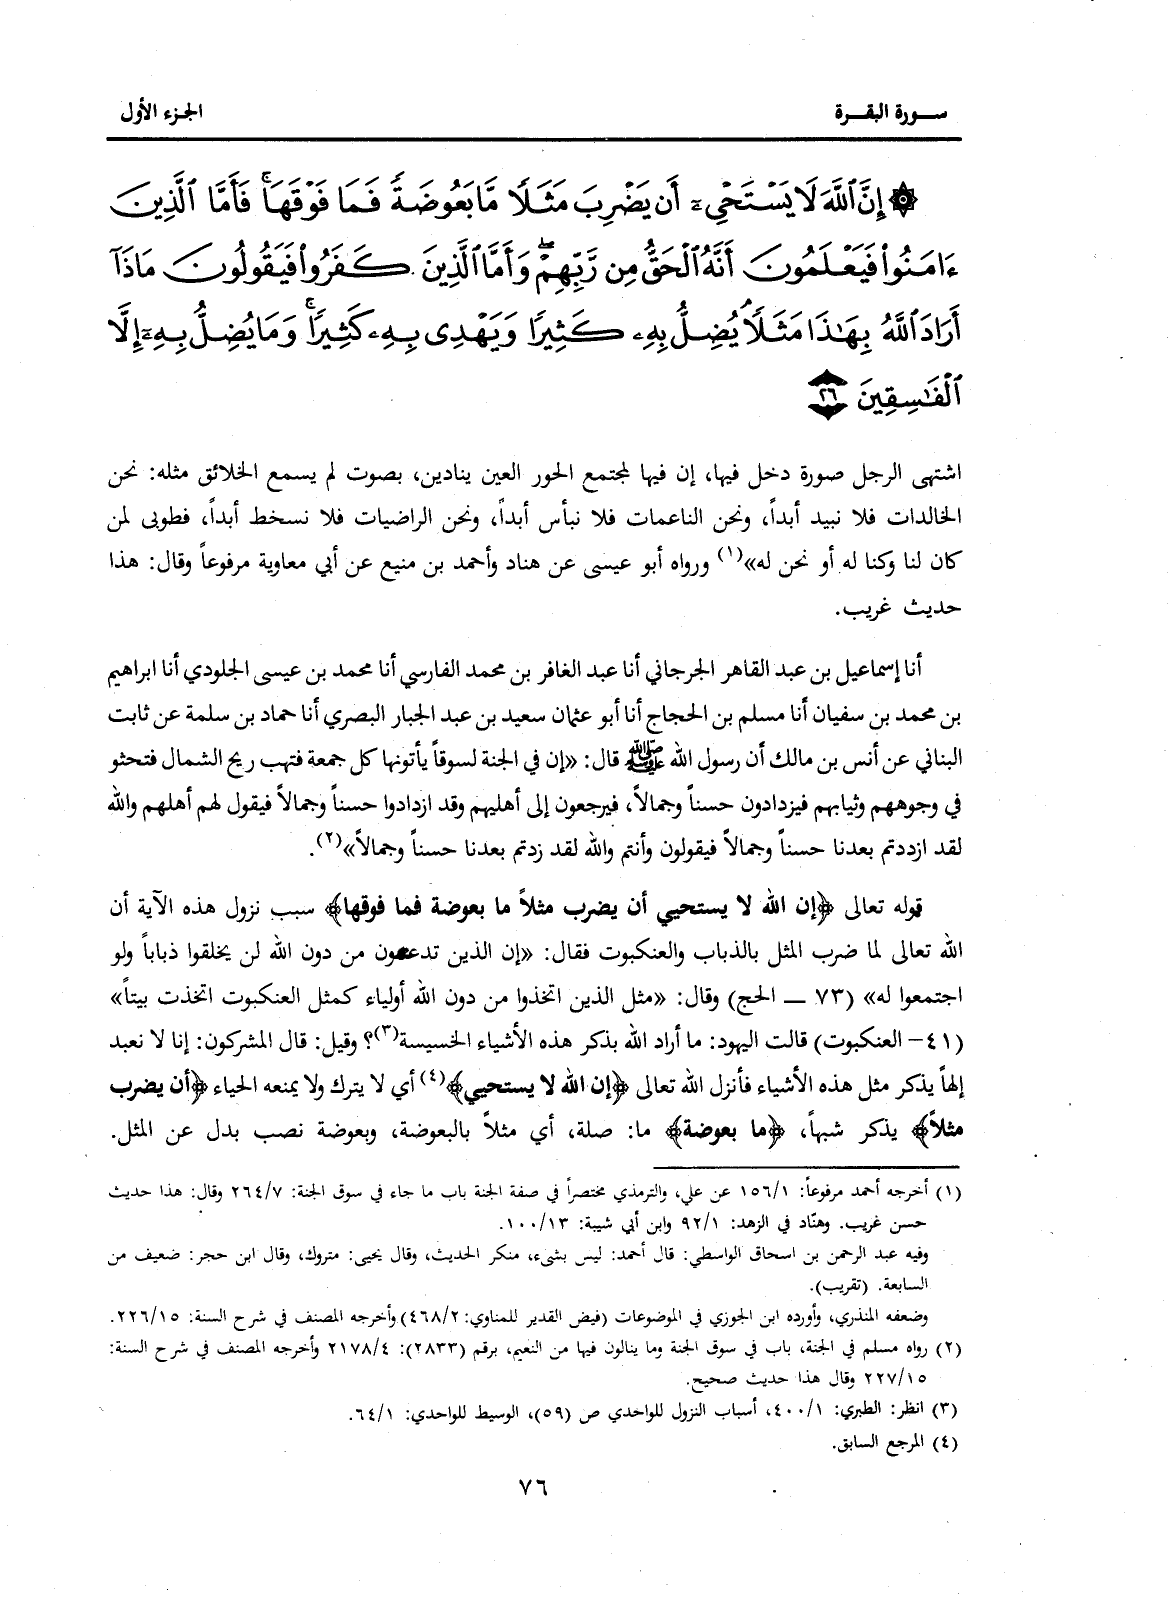 سورة البقرة
الجزء الأول
۞ إِنَّ ٱللَّهَ لَا يَسْتَحْىِۦٓ أَن يَضْرِبَ مَثَلًا مَّا بَعُوضَةً فَمَا فَوْقَهَا ۚ فَأَمَّا ٱلَّذِينَ
ءَامَنُوا۟ فَيَعْلَمُونَ أَنَّهُ ٱلْحَقُّ مِن رَّبِّهِمْ ۖ وَأَمَّا ٱلَّذِينَ كَفَرُوا۟ فَيَقُولُونَ مَاذَآ
أَرَادَ ٱللَّهُ بِهَـٰذَا مَثَلًا ۘ يُضِلُّ بِهِۦ كَثِيرًا وَيَهْدِى بِهِۦ كَثِيرًا ۚ وَمَا يُضِلُّ بِهِۦٓ إِلَّا
ٱلْفَـٰسِقِينَ ٢٦
اشتهى الرجل صورة دخل فيها، إن فيها لمجتمع الحور العين ينادين، بصوت لم يسمع الخلائق مثله: نحن
الخالدات فلا نبيد أبداً، ونحن الناعمات فلا نبأس أبداً، ونحن الراضيات فلا نسخط أبداً، فطوبى لمن
كان لنا وكنا له أو نحن له»(١) ورواه أبو عيسى عن هناد وأحمد بن منيع عن أبي معاوية مرفوعاً وقال: هذا
حديث غريب.
أنا إسماعيل بن عبد القاهر الجرجاني أنا عبد الغافر بن محمد الفارسي أنا محمد بن عيسى الجلودي أنا ابراهيم
بن محمد بن سفيان أنا مسلم بن الحجاج أنا أبو عثمان سعيد بن عبد الجبار البصري أنا حماد بن سلمة عن ثابت
البناني عن أنس بن مالك أن رسول الله ﷺ قال: «إن في الجنة لسوقاً يأتونها كل جمعة فتهب ريح الشمال فتحثو
في وجوههم وثيابهم فيزدادون حسناً وجمالاً، فيرجعون إلى أهليهم وقد ازدادوا حسناً وجمالاً فيقول لهم أهلهم والله
لقد ازددتم بعدنا حسناً وجمالاً فيقولون وأنتم والله لقد زدتم بعدنا حسناً وجمالاً»(٢).
قوله تعالى ﴿إن الله لا يستحيي أن يضرب مثلاً ما بعوضة فما فوقها﴾ سبب نزول هذه الآية أن
الله تعالى لما ضرب المثل بالذباب والعنكبوت فقال: «إن الذين تدعون من دون الله لن يخلقوا ذباباً ولو
اجتمعوا له» (٧٣ ــ الحج) وقال: «مثل الذين اتخذوا من دون الله أولياء كمثل العنكبوت اتخذت بيتاً»
(٤١- العنكبوت) قالت اليهود: ما أراد الله بذكر هذه الأشياء الخسيسة(٣)؟ وقيل: قال المشركون: إنا لا نعبد
إلهاً يذكر مثل هذه الأشياء فأنزل الله تعالى ﴿إن الله لا يستحيي﴾(٤) أي لا يترك ولا يمنعه الحياء ﴿أن يضرب
مثلاً﴾ يذكر شبهاً، ﴿ما بعوضة﴾ ما: صلة، أي مثلاً بالبعوضة، وبعوضة نصب بدل عن المثل.
(١) أخرجه أحمد مرفوعاً: ١٥٦/١ عن علي، والترمذي مختصراً في صفة الجنة باب ما جاء في سوق الجنة: ٢٦٤/٧ وقال: هذا حديث
حسن غريب. وهنّاد في الزهد: ٩٢/١ وابن أبي شيبة: ١٠٠/١٣.
وفيه عبد الرحمن بن اسحاق الواسطي: قال أحمد: ليس بشيء، منكر الحديث، وقال يحيى: متروك، وقال ابن حجر: ضعيف من
السابعة. (تقريب).
وضعفه المنذري، وأورده ابن الجوزي في الموضوعات (فيض القدير للمناوي: ٤٦٨/٢) وأخرجه المصنف في شرح السنة: ٢٢٦/١٥.
(٢) رواه مسلم في الجنة، باب في سوق الجنة وما ينالون فيها من النعيم، برقم (٢٨٣٣): ٢١٧٨/٤ وأخرجه المصنف في شرح السنة:
٢٢٧/١٥ وقال هذا حديث صحيح.
(٣) انظر: الطبري: ٤٠٠/١، أسباب النزول للواحدي ص (٥٩)، الوسيط للواحدي: ٦٤/١.
(٤) المرجع السابق.
٧٦